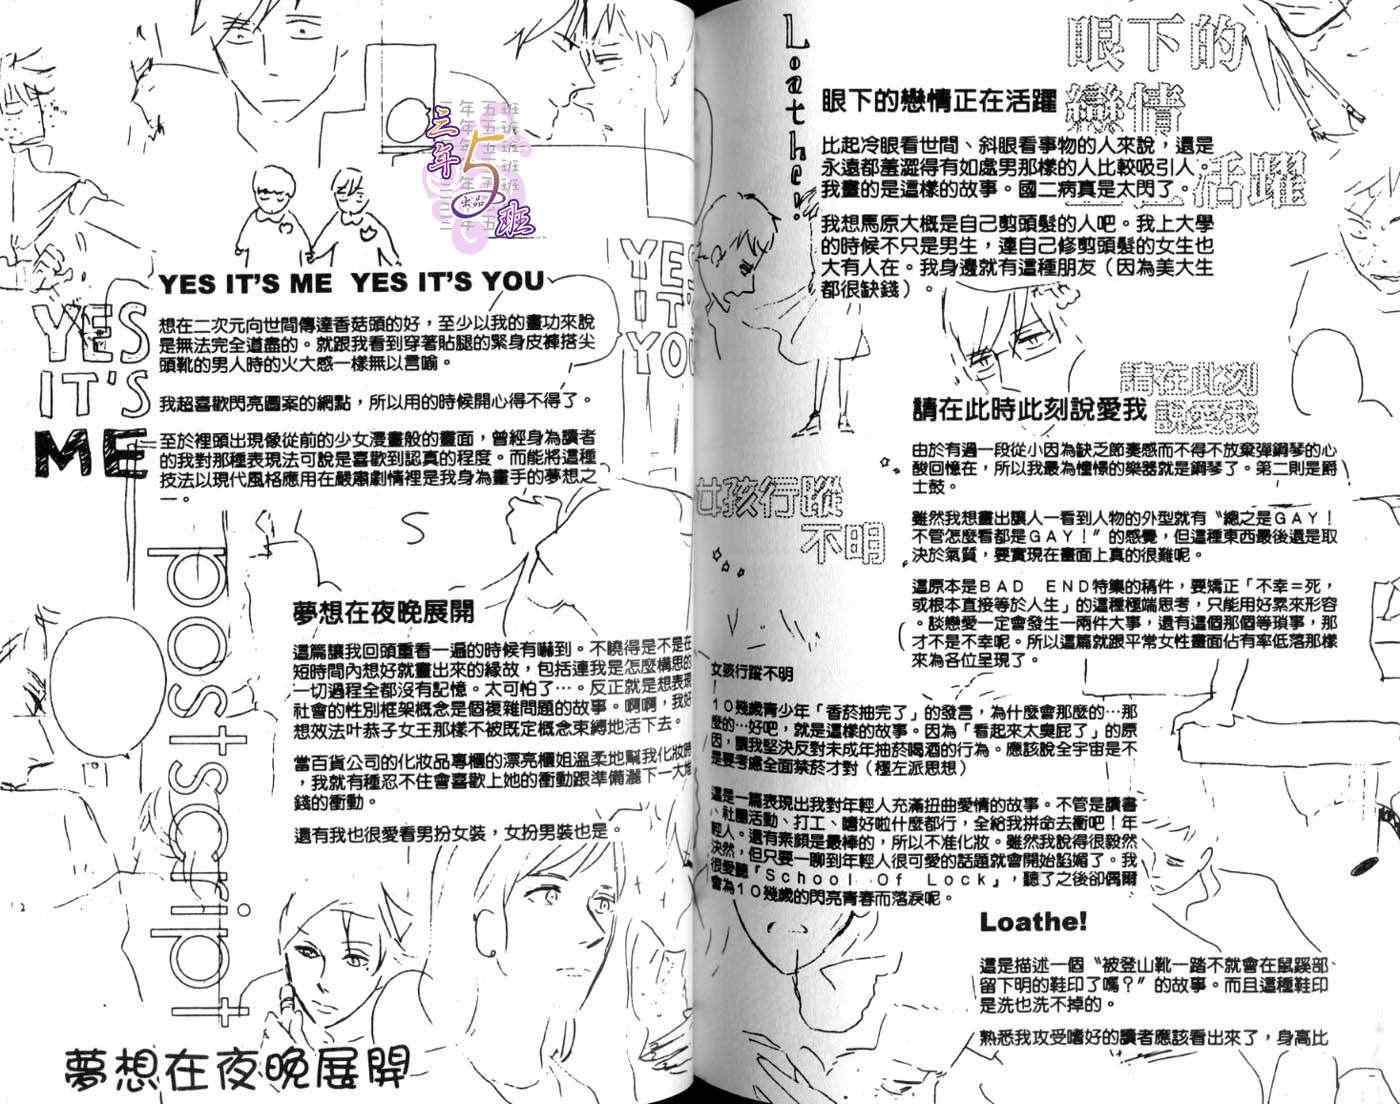 YES IT'S ME  YES IT'S YOU
想在二次元向世間傳達香菇頭的好，至少以我的畫功來說
是無法完全道盡的。就跟我看到穿著貼腿的緊身皮褲搭尖
頭靴的男人時的火大感一樣無以言喻。
我超喜歡閃亮圖案的網點，所以用的時候開心得不得了。
至於裡頭出現像從前的少女漫畫般的畫面，曾經身為讀者
的我對那種表現法可說是喜歡到認真的程度。而能將這種
技法以現代風格應用在嚴肅劇情裡是我身為畫手的夢想之
一。
YES
IT'S
ME
YES
IT'S
YOU
三年5班
出品
postscript
夢想在夜晚展開
這篇讓我回頭重看一遍的時候有嚇到。不曉得是不是在
短時間內想好就畫出來的緣故，包括連我是怎麼構思的
一切過程全都沒有記憶。太可怕了…。反正就是想表現
社會的性別框架概念是個複雜問題的故事。啊啊，我好
想效法叶恭子女王那樣不被既定概念束縛地活下去。
當百貨公司的化妝品專櫃的漂亮櫃姐溫柔地幫我化妝時
，我就有種忍不住會喜歡上她的衝動跟準備灑下一大堆
錢的衝動。
還有我也很愛看男扮女裝，女扮男裝也是。
夢想在夜晚展開
Loathe!
眼下的
戀情
活躍
眼下的戀情正在活躍
比起冷眼看世間、斜眼看事物的人來說，還是
永遠都羞澀得有如處男那樣的人比較吸引人。
我畫的是這樣的故事。國二病真是太閃了。
我想馬原大概是自己剪頭髮的人吧。我上大學
的時候不只是男生，連自己修剪頭髮的女生也
大有人在。我身邊就有這種朋友（因為美大生
都很缺錢）。
請在此刻
說愛我
請在此時此刻說愛我
由於有過一段從小因為缺乏節奏感而不得不放棄彈鋼琴的心
酸回憶在，所以我最為憧憬的樂器就是鋼琴了。第二則是爵
士鼓。
雖然我想畫出讓人一看到人物的外型就有〝總之是ＧＡＹ！
不管怎麼看都是ＧＡＹ！〞的感覺，但這種東西最後還是取
決於氣質，要實現在畫面上真的很難呢。
這原本是ＢＡＤ　ＥＮＤ特集的稿件，要矯正「不幸＝死，
或根本直接等於人生」的這種極端思考，只能用好累來形容
。談戀愛一定會發生一兩件大事，還有這個那個等瑣事，那
才不是不幸呢。所以這篇就跟平常女性畫面佔有率低落那樣
來為各位呈現了。
女孩行蹤
不明
女孩行蹤不明
１０幾歲青少年「香菸抽完了」的發言，為什麼會那麼的…那
麼的…好吧，就是這樣的故事。因為「看起來太臭屁了」的原
因，讓我堅決反對未成年抽菸喝酒的行為。應該說全宇宙是不
是要考慮全面禁菸才對（極左派思想）
這是一篇表現出我對年輕人充滿扭曲愛情的故事。不管是讀書
、社團活動、打工、嗜好啦什麼都行，全給我拼命去衝吧！年
輕人。還有素顏是最棒的，所以不准化妝。雖然我說得很毅然
決然，但只要一聊到年輕人很可愛的話題就會開始諂媚了。我
很愛聽「Ｓｃｈｏｏｌ　Ｏｆ　Ｌｏｃｋ」，聽了之後卻偶爾
會為１０幾歲的閃亮青春而落淚呢。
Loathe!
這是描述一個〝被登山靴一踏不就會在鼠蹊部
留下明的鞋印了嗎？〞的故事。而且這種鞋印
是洗也洗不掉的。
熟悉我攻受嗜好的讀者應該看出來了，身高比